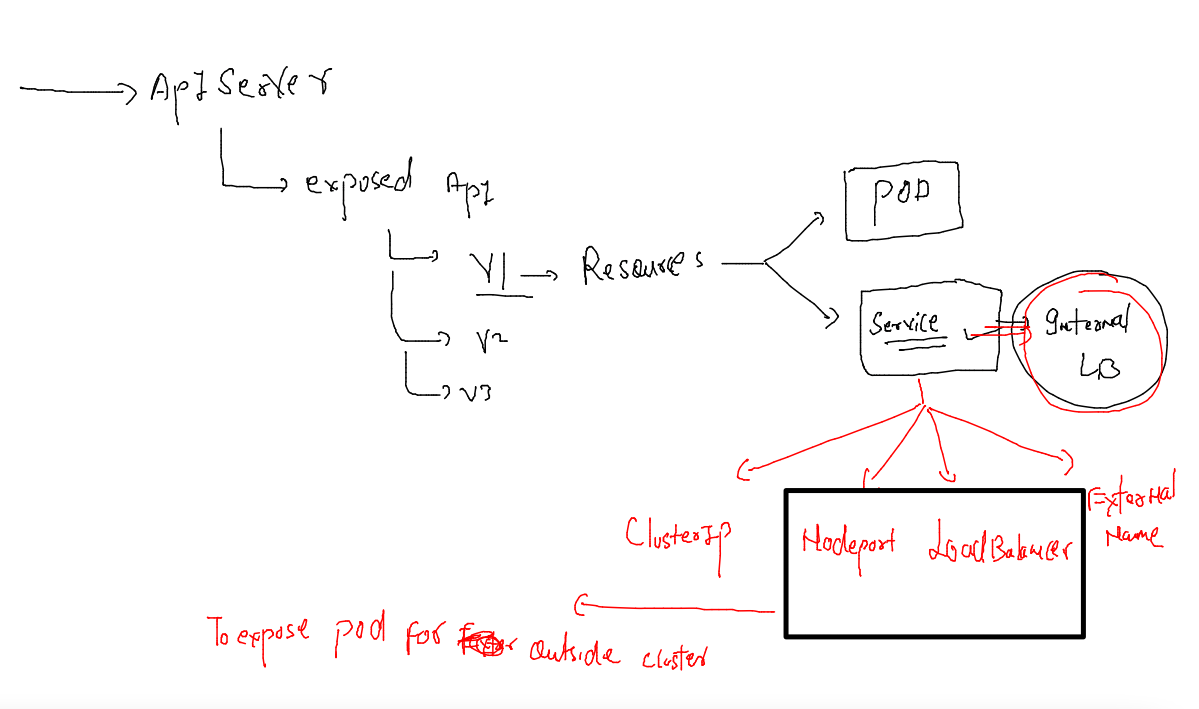 ApI Server
exposed ApI
V1
Resources
POD
V2
V3
Service
Internal
LB
ClusterIP
Nodeport
LoadBalancer
External
Name
To expose pod for outside cluster